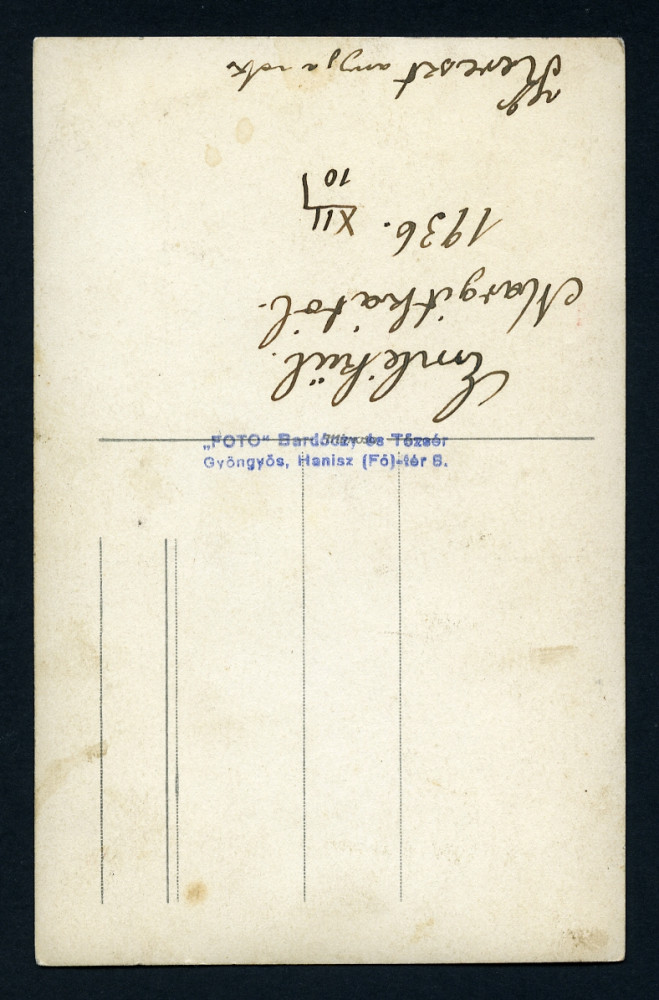 Emlékül.
Margitkától.
1936. XII
10
Kereszt anyja volt
„FOTO“ Bardóczy és Tőzsér
Gyöngyös, Hanisz (Fő)-tér 5.